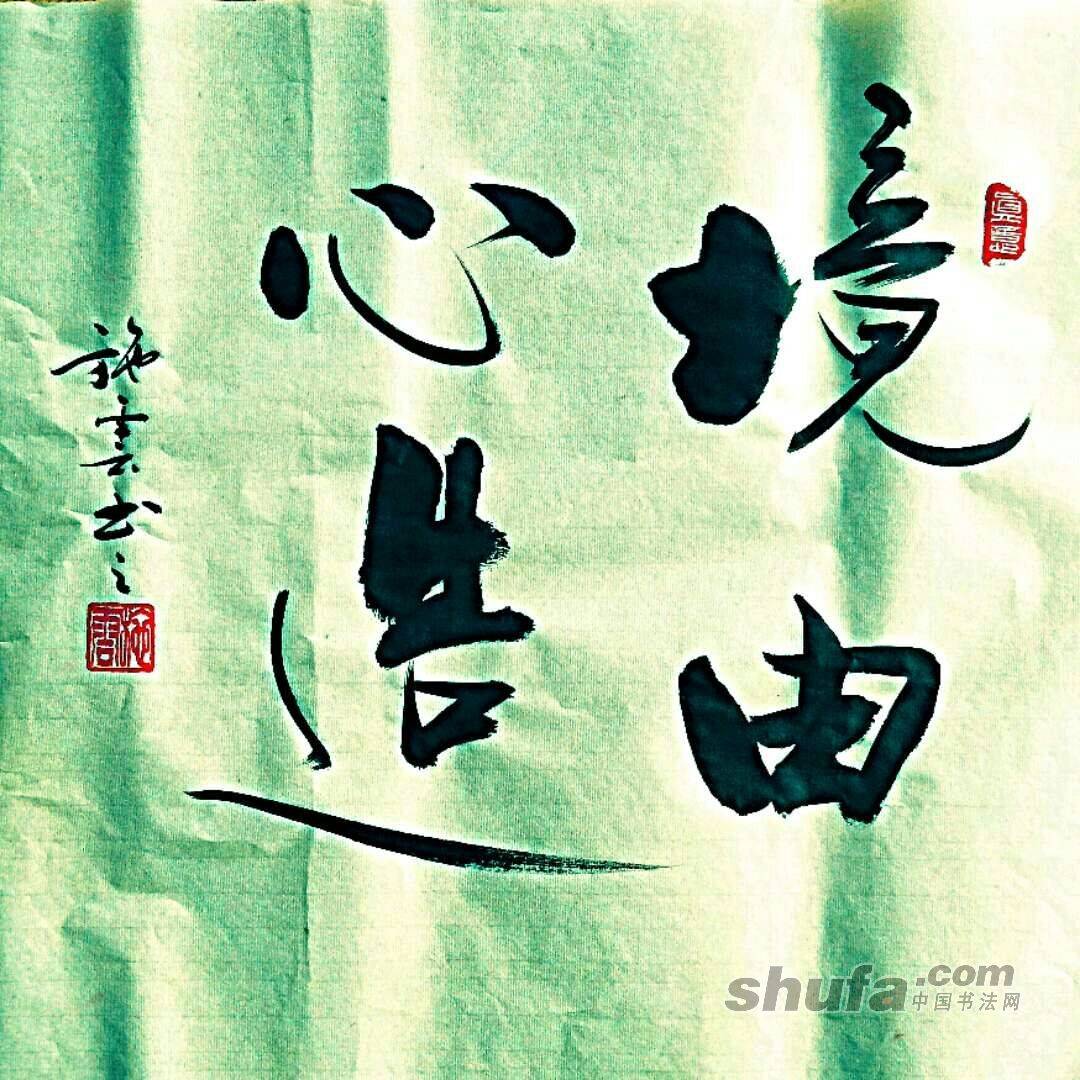 境由
心造
施雲书之
施雲
shufa.com
中国书法网